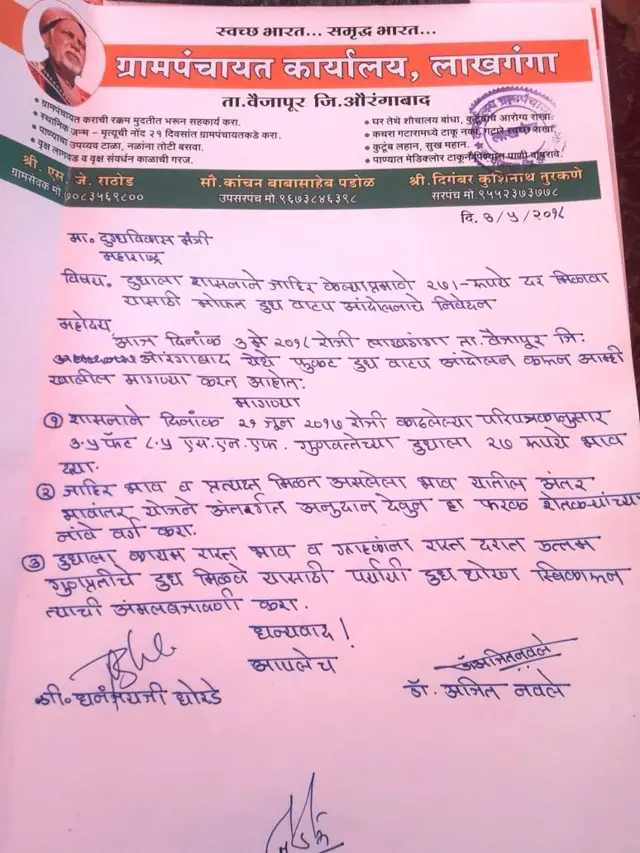 स्वच्छ भारत... समृद्ध भारत...
ग्रामपंचायत कार्यालय, लाखगंगा
ता.वैजापूर जि.औरंगाबाद
• ग्रामपंचायत कराची रक्कम मुदतीत भरून सहकार्य करा.
• स्थानिक जन्म - मृत्यूची नोंद २१ दिवसांत ग्रामपंचायतकडे करा.
• पाण्याचा उपव्यय टाळा, नळांना तोटी बसवा.
• वृक्ष लागवड व वृक्ष संवर्धन काळाची गरज.
• घर तेथे शौचालय बांधा, कुटुंबाचे आरोग्य राखा.
• कचरा गटारामध्ये टाकू नका, गटारे स्वच्छ राखा.
• कुटूंब लहान, सुख महान.
• पाण्यात मेडिक्लोर टाकून पिण्यास पाणी वापरावे.
श्री. एस. जे. राठोड
ग्रामसेवक मो.७०८३५६९८००
सौ.कांचन बाबासाहेब पडोळ
उपसरपंच मो.९६७३८४६३९८
श्री.दिगंबर कुशिनाथ तुरकणे
सरपंच मो.९५५२३७३७७८
दि. ३/५/२०१८
मा. दुग्धविकास मंत्री
महाराष्ट्र
विषय. दुधाला शासनाने जाहिर केल्याप्रमाणे २७/- रूपये दर मिळावा
यासाठी मोफत दुध वाटप आंदोलनाचे निवेदन
महोदय
आज दिनांक ३ मे २०१८ रोजी लाखगंगा ता. वैजापूर जि:
औरंगाबाद येथे फुकट दुध वाटप आंदोलन करून आम्ही
खालील मागण्या करत आहोत.
मागण्या
① शासनाने दिनांक २१ जून २०१७ रोजी काढलेल्या परिपत्रकानुसार
३.५ फॅट ८.५ एस.एन.एफ. गुणवत्तेच्या दुधाला २७ रूपये भाव
द्या.
② जाहिर भाव व प्रत्यक्ष मिळत असलेला भाव यातील अंतर
भावांतर योजने अंतर्गत अनुदान देवुन हा फरक शेतकऱ्यांच्या
नांवे वर्ग करा.
③ दुधाला कायम रास्त भाव व ग्राहकांना रास्त दरात उत्तम
गुणप्रतीचे दुध मिळवे यासाठी पर्यायी दुध धोरण स्विकारून
त्याची अंमलबजावणी करा.
धन्यवाद!
आपलेच
श्री. धनंजयजी धोरडे
डॉ. अजित नवले